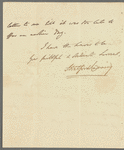 letter to me till it was too late to
offer an
Day.
I have the honor to be
Your faithful & obedient Servant,